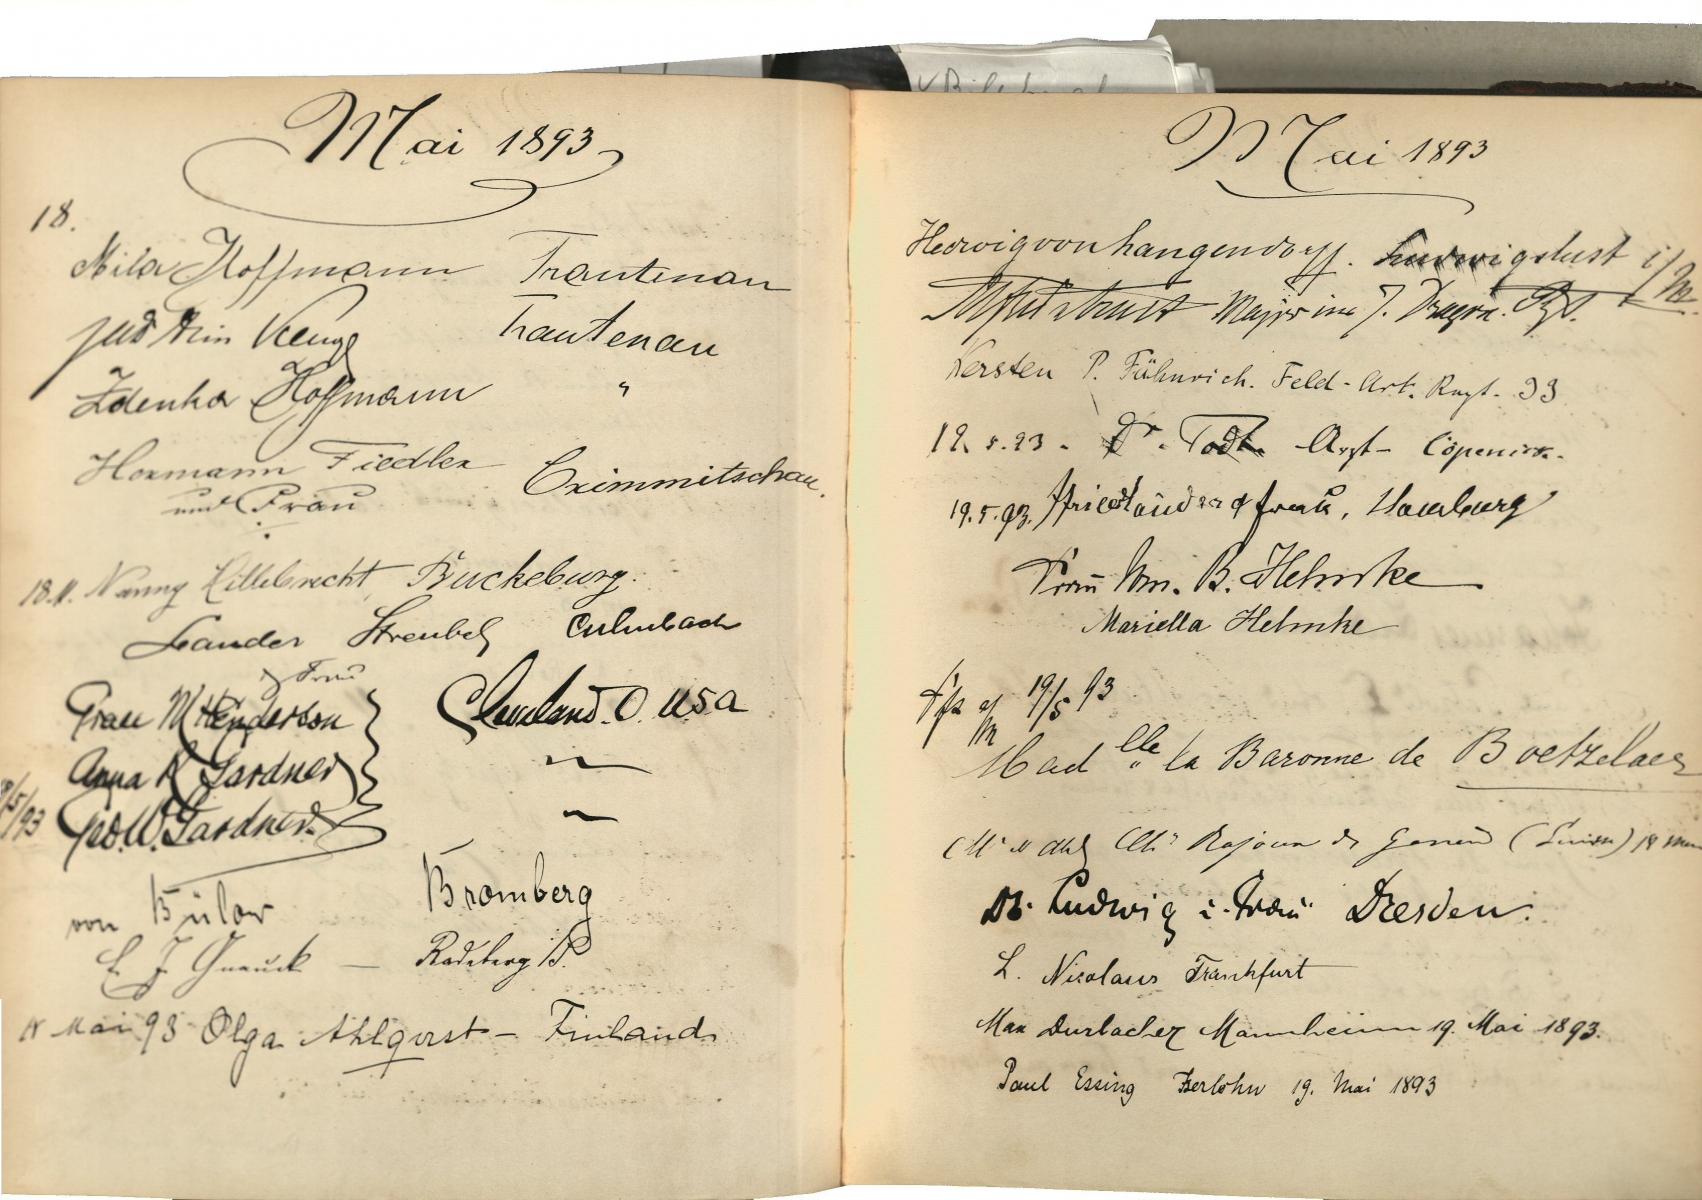 Mai 1893
18.
Mila Hoffmann Trautenau
Trautenau
Zdenka Hoffmann "
Hermann Fiedler Crimmitschau.
und Frau
18. Nanny Hillebrecht, Bückeburg.
Leander Streubel Culmbach
Frau
Grace M Henderson Cleveland. O. U.S.A
Anna R Gardner "
18/5/93 Geo. W. Gardner "
von Bülow Bromberg
E J Gnauck — Radeberg
18 Mai 93 Olga Ahlqvist — Finland
Mai 1893
Hedwig von Langendorff. Ludwigslust i/M.
Major im 7. Dragon. Rgt.
Kersten P. Fähnrich. Feld-Art. Regt. 33
19.5.93. Dr. Todt Arzt Cöpenick.
19.5.93. Friedländer & Frau, Hamburg
Frau Wm. B. Helmke
Mariella Helmke
19/5 93
Madlle la Baronne de Boetzelaer
de Genève (Suisse) 18
Dr. Ludwig u. Frau Dresden.
L. Nicolaus Frankfurt
Max Durlacher Mannheim 19. Mai 1893.
Paul Essing Iserlohn 19. Mai 1893